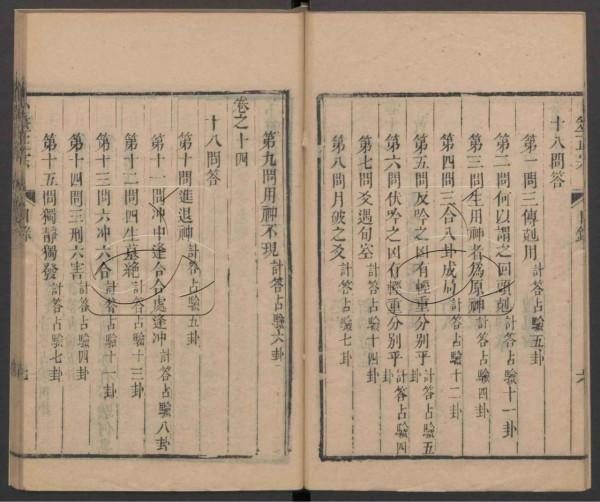 十八問答
第一問三傳剋用計答占驗五卦
第二問何以謂之回頭剋計答占驗十一卦
第三問生用神者爲原神計答占驗四卦
第四問三合八卦成局計答占驗十二卦
第五問反吟之凶有輕重分別乎計答占驗五卦
第六問伏吟之凶有輕重分別乎計答占驗四
第七問爻遇旬空計答占驗十四卦
第八問月破之爻計答占驗七卦
第九問用神不現計答占驗六卦
卷之十四
十八問答
第十問進退神計答占驗五卦
第十一問冲中逢合合處逢冲計答占驗八卦
第十二問四生墓絶計答占驗十三卦
第十三問六冲六合計答占驗十一卦
第十四問三刑六害計答占驗四卦
第十五問獨靜獨發計答占驗七卦